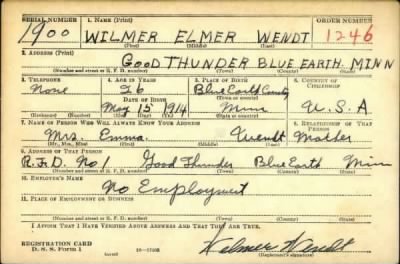 SERIAL NUMBER 1. NAME (Print) ORDER NUMBER
1900 WILMER ELMER WENDT 1246
(First) (Middle) (Last)
2. ADDRESS (Print)
GOOD THUNDER BLUE EARTH. MINN
(Number and street or R. F. D. number) (Town) (County) (State)
3. TELEPHONE 4. AGE IN YEARS 5. PLACE OF BIRTH 6. COUNTRY OF CITIZENSHIP
None 26 Blue Earth County
DATE OF BIRTH (Town or county)
May 15 1914 Minn U. S. A
(Exchange) (No.) (Mo.) (Day) (Yr.) (State or country)
7. NAME OF PERSON WHO WILL ALWAYS KNOW YOUR ADDRESS 8. RELATIONSHIP OF THAT PERSON
Mrs. Emma Wendt Mother
(Mr., Mrs., Miss) (First) (Middle) (Last)
9. ADDRESS OF THAT PERSON
R.F.D. No 1 Good Thunder Blue Earth Minn
(Number and street or R. F. D. number) (Town) (County) (State)
10. EMPLOYER'S NAME
No Employment
11. PLACE OF EMPLOYMENT OR BUSINESS
(Number and street or R. F. D. number) (Town) (County) (State)
I AFFIRM THAT I HAVE VERIFIED ABOVE ANSWERS AND THAT THEY ARE TRUE.
REGISTRATION CARD
D. S. S. Form 1 Wilmer Wendt
(Registrant's signature)